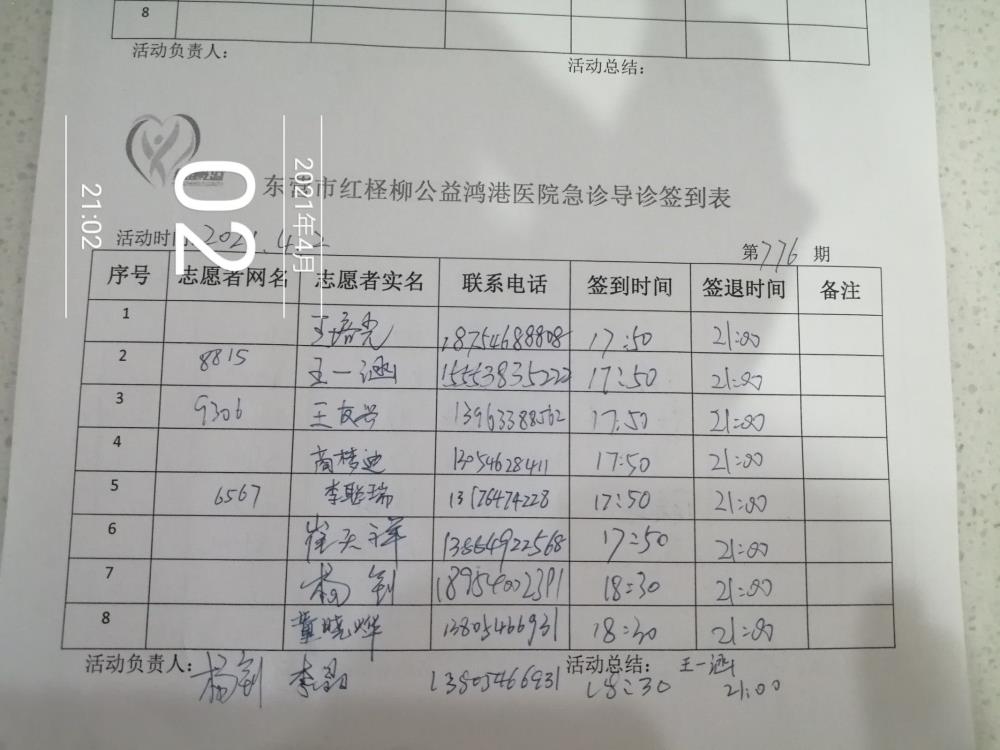 8
活动负责人：
活动总结：
02
2021年4月
21:02
东营市红柽柳公益鸿港医院急诊导诊签到表
活动时间：2021.4.2
第776期
序号 志愿者网名 志愿者实名 联系电话 签到时间 签退时间 备注
1 王培光 18754688808 17:50 21:00
2 8815 王一涵 15553835222 17:50 21:00
3 9306 王友兴 13963388562 17:50 21:00
4 商梦迪 13054628411 17:50 21:00
5 6567 李聪瑞 17:50 21:00
6 崔天祥 13864922568 17:50 21:00
7 杨钊 18954002391 18:30 21:00
8 董晓烨 13805466931 18:30 21:00
活动负责人：杨钊 活动总结：王一涵
13805466931 18:30 21:00